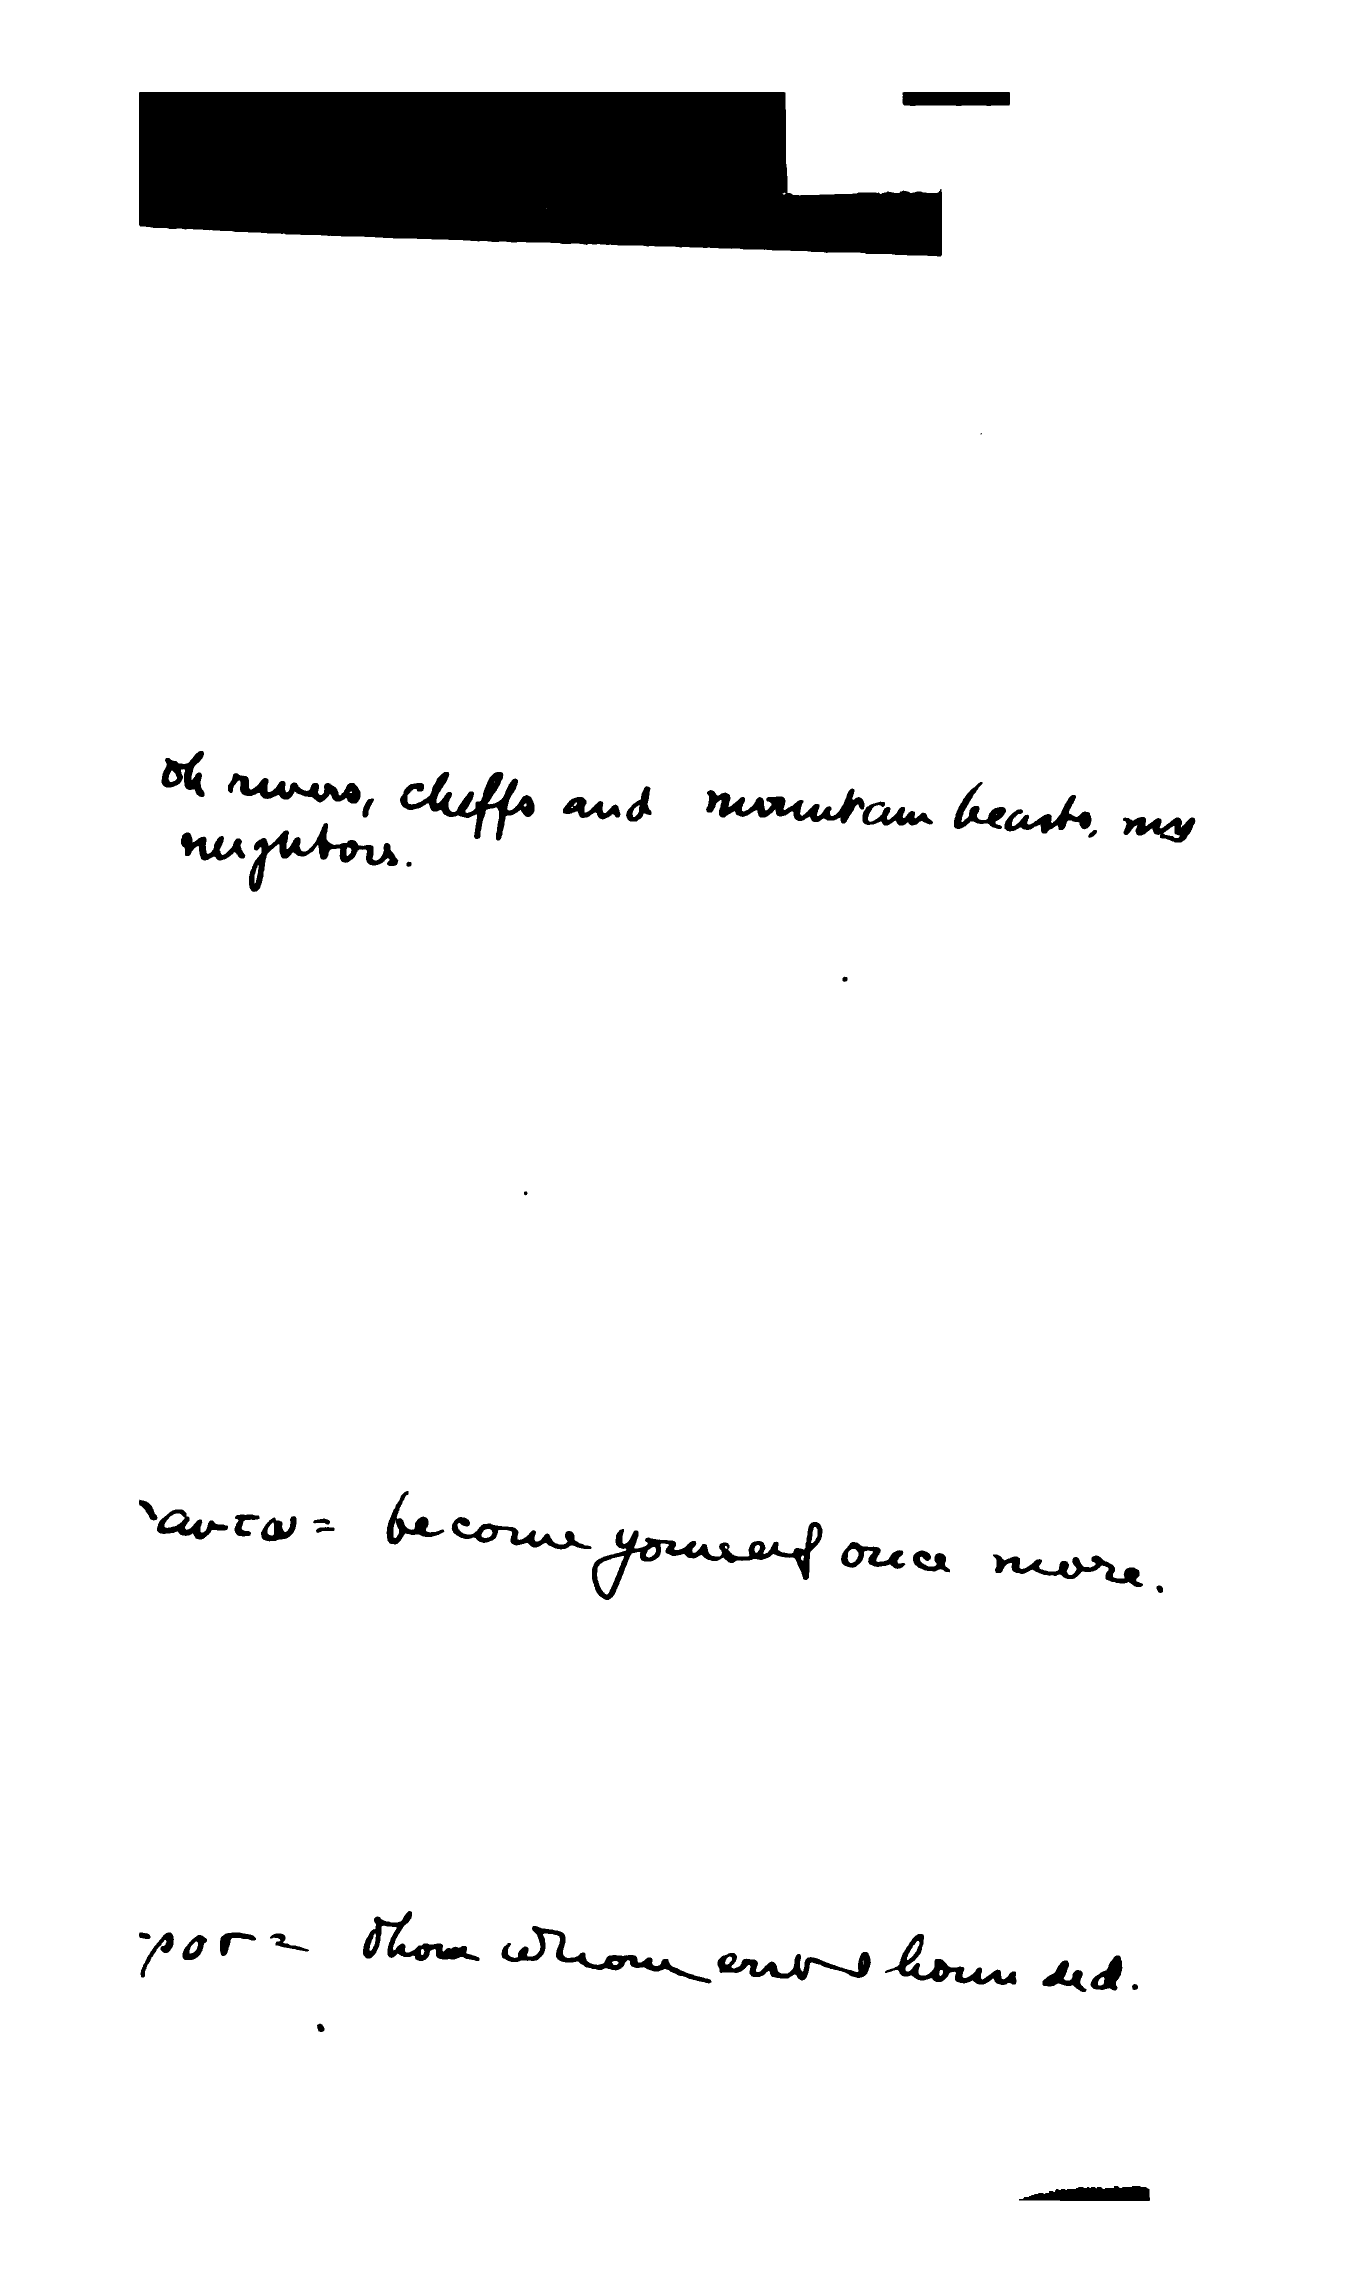 oh rivers, cliffs and mountain beasts, my
neighbors.
αυτω = become yourself once more.
ρος = whom erst hounded.